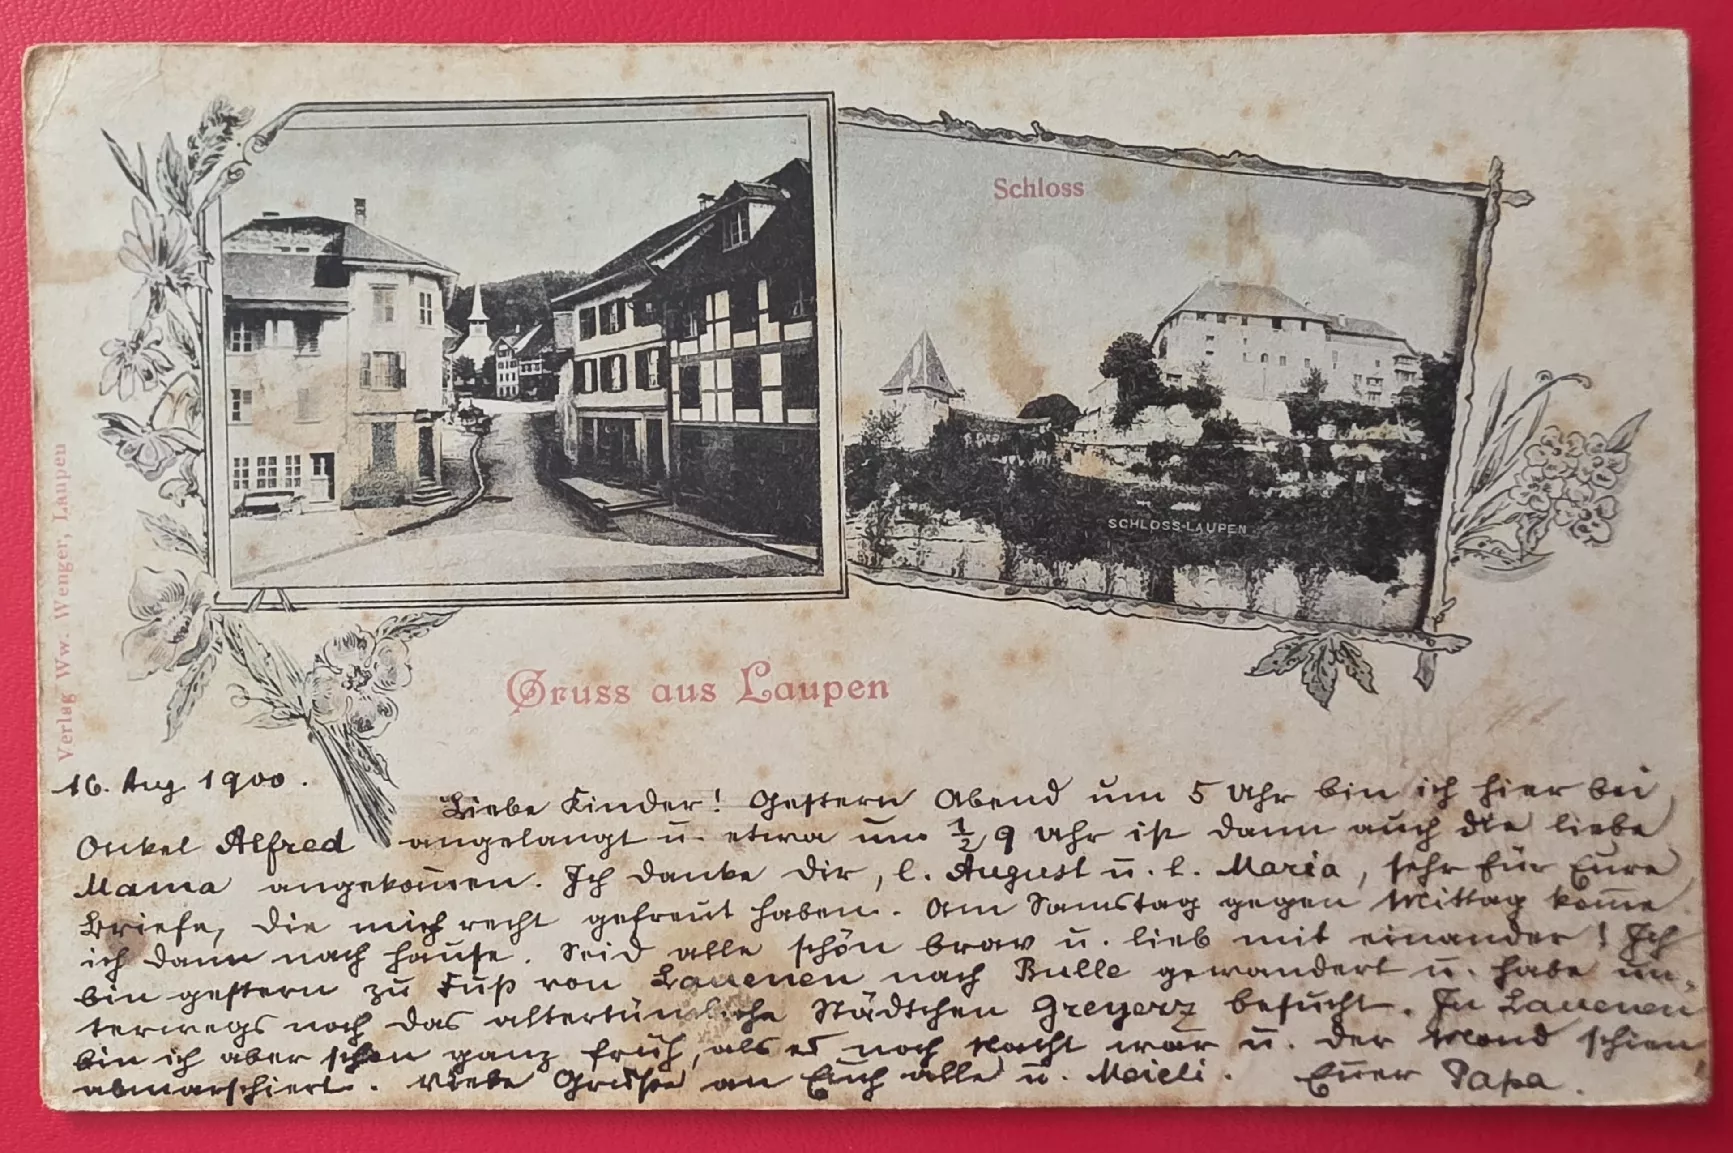 Schloss
SCHLOSS-LAUPEN
Verlag Ww. Wenger, Laupen
Gruss aus Laupen
16. Aug 1900.
Liebe Kinder! Gestern Abend um 5 Uhr bin ich hier bei
Onkel Alfred angelangt u. etwa um ½ 9 Uhr ist dann auch die liebe
Mama angekom̄en. Ich danke Dir, l. August u. l. Maria, sehr für Eure
Briefe, die mich recht gefreut haben. Am Samstag gegen Mittag kom̄e
ich dann nach Hause. Seid alle schön brav u. lieb mit einander! Ich
bin gestern zu Fuß von Lauenen nach Bulle gewandert u. habe un-
terwegs noch das altertümliche Städtchen Greyerz besucht. In Lauenen
bin ich aber schon ganz früh, als es noch Nacht war u. der Mond schien
abmarschiert. Viele Grüße an Euch alle u. Meieli. Euer Papa.